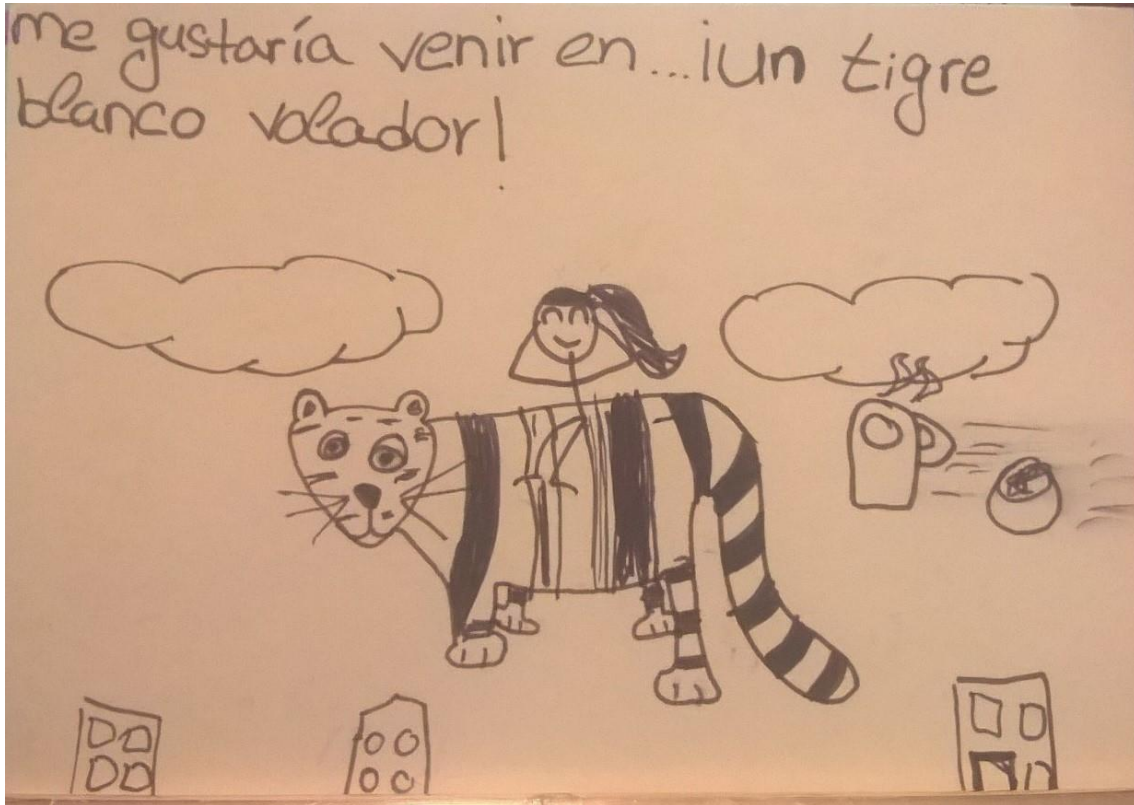 me gustaría venir en...¡un tigre
blanco volador!